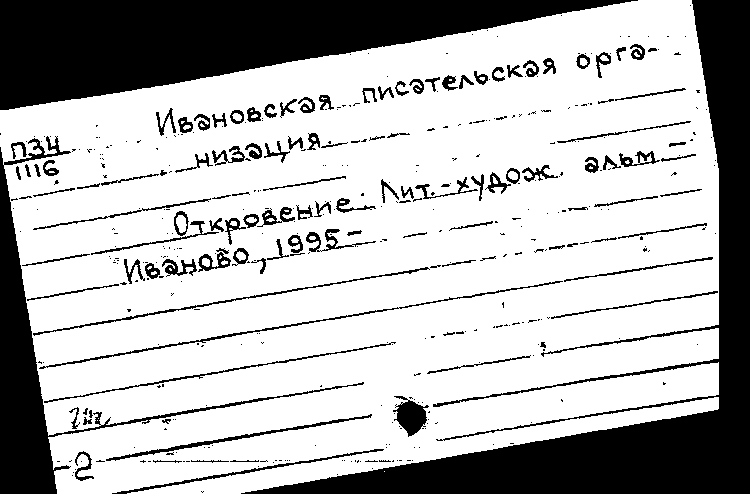 Ивановская писательская орга-
П34
1116
низация.
Откровение: Лит.-худож. альм -
Иваново, 1995 -
2